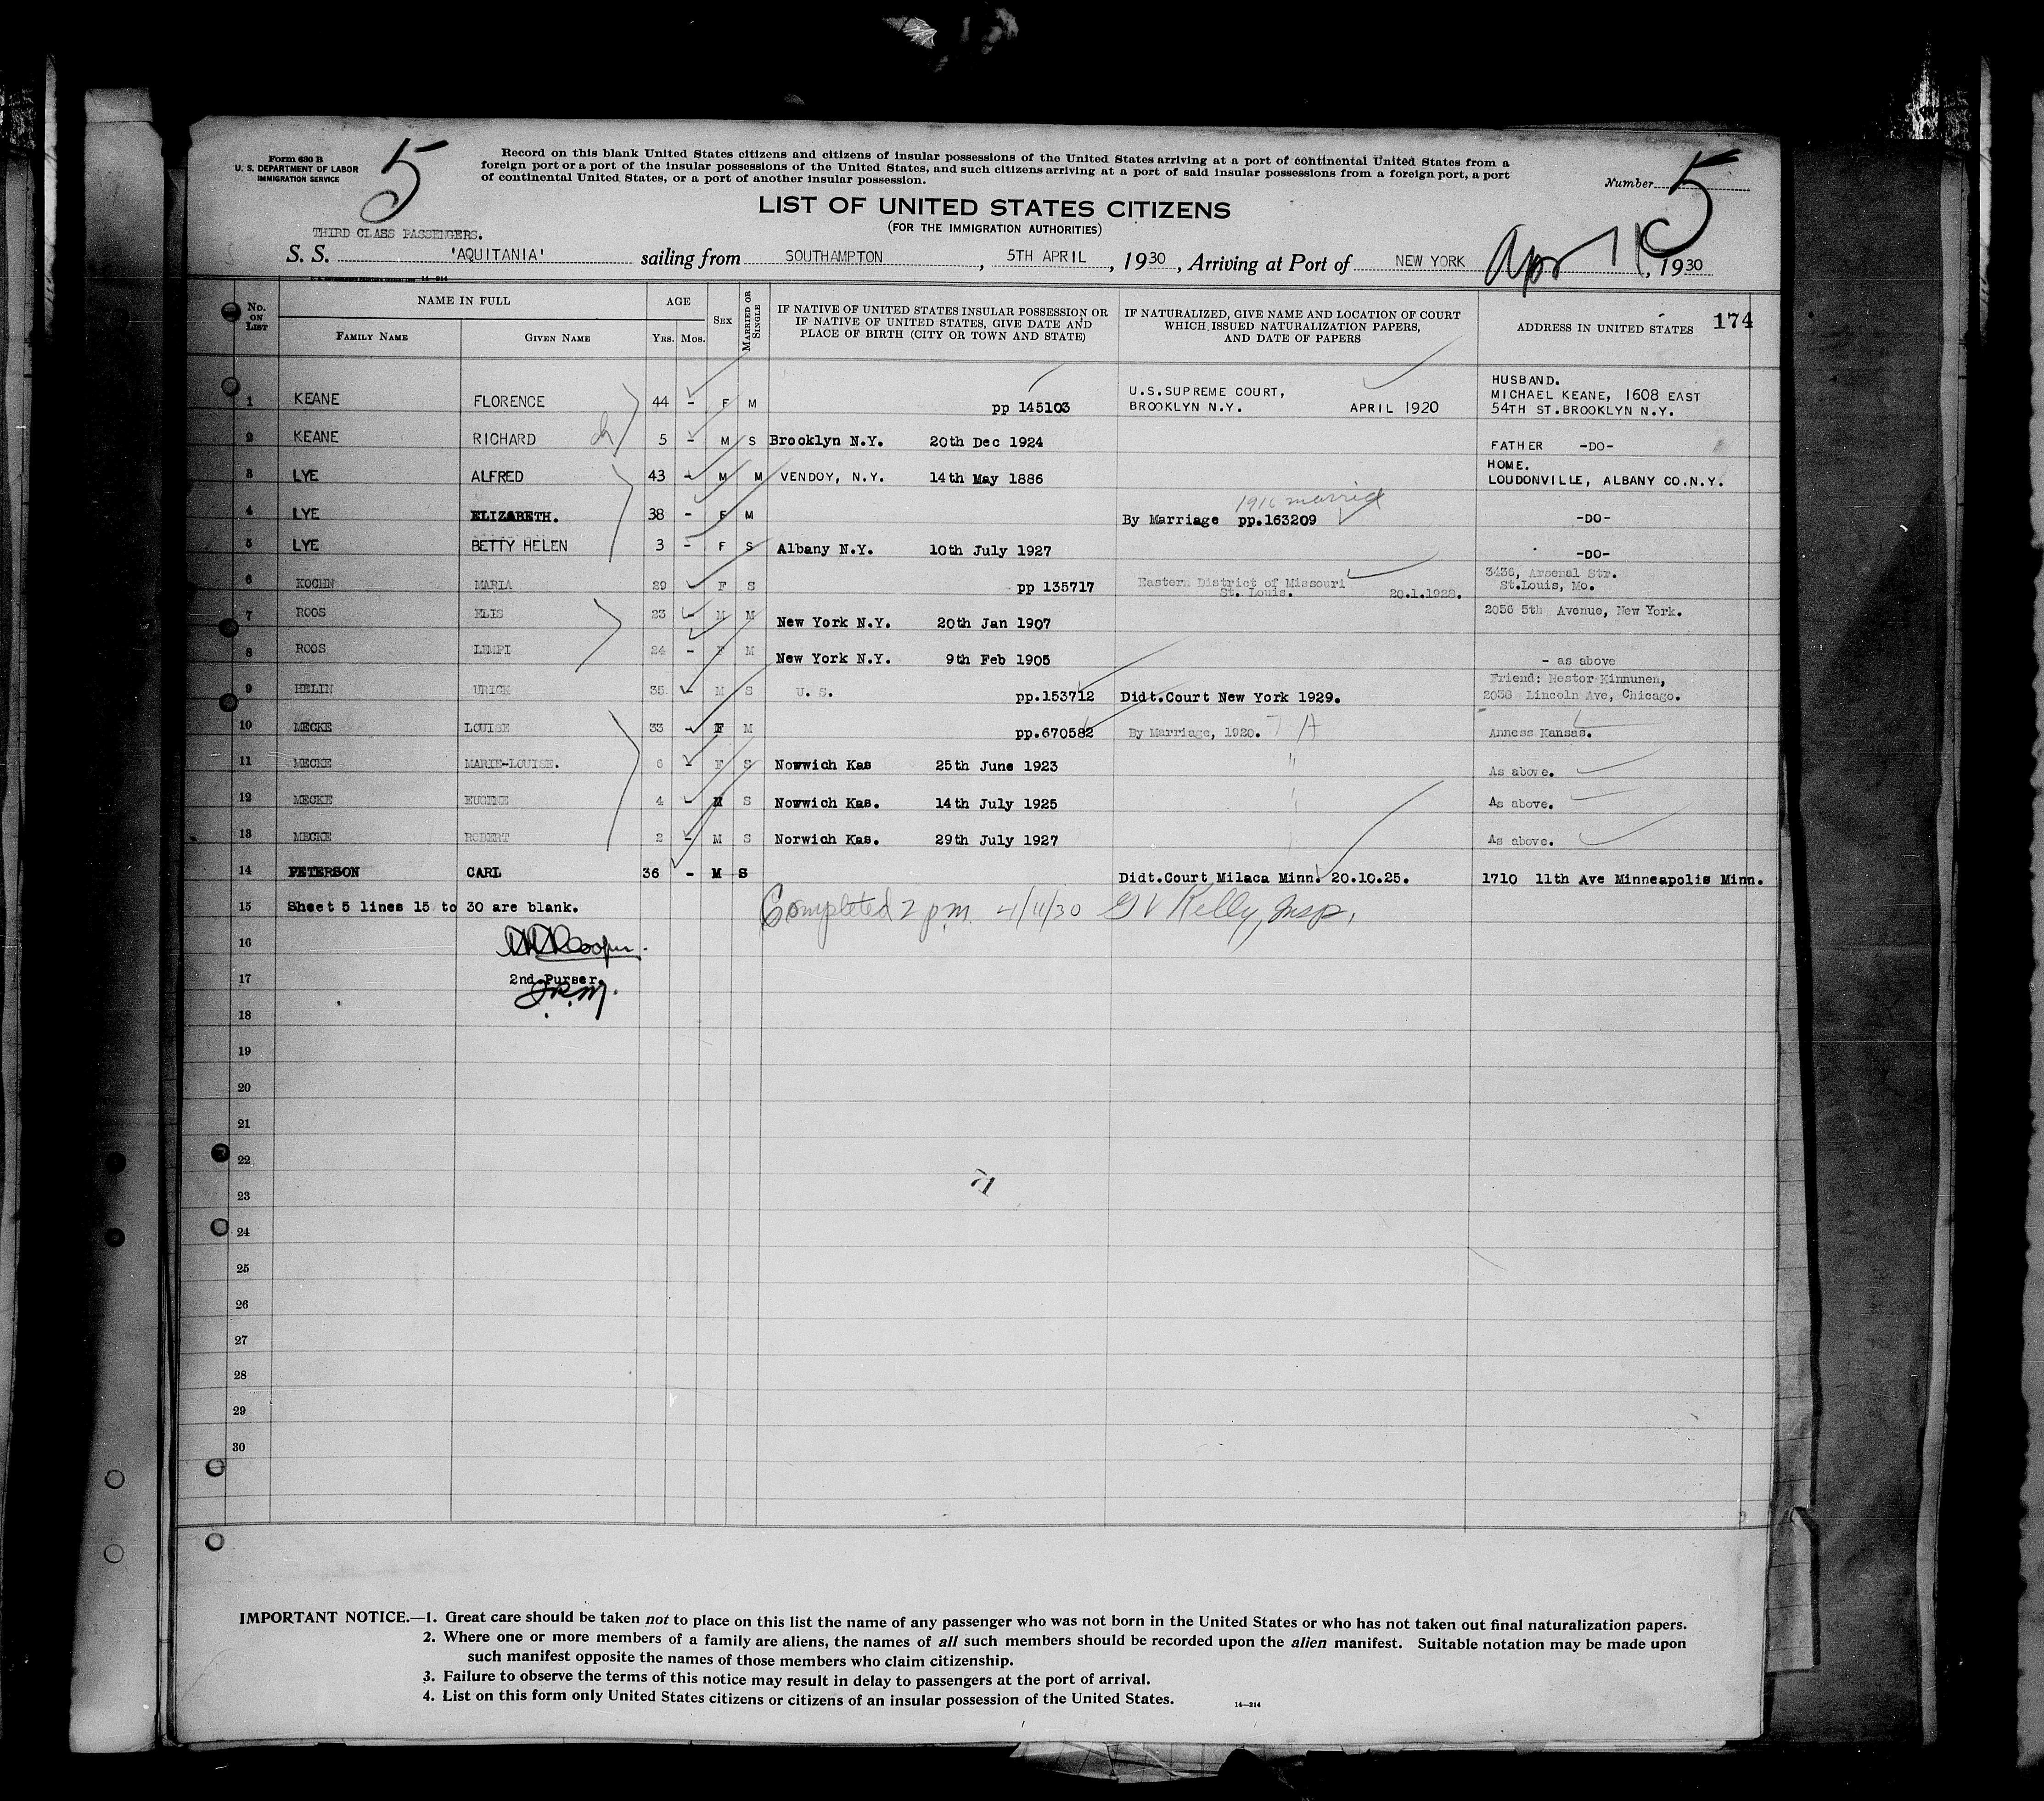 Form 630 B
U. S. DEPARTMENT OF LABOR
IMMIGRATION SERVICE
5
Record on this blank United States citizens and citizens of insular possessions of the United States arriving at a port of continental United States from a
foreign port or a port of the insular possessions of the United States, and such citizens arriving at a port of said insular possessions from a foreign port, a port
of continental United States, or a port of another insular possession.
Number 5
LIST OF UNITED STATES CITIZENS
(FOR THE IMMIGRATION AUTHORITIES)
THIRD CLASS PASSENGERS.
S. S. 'AQUITANIA' sailing from SOUTHAMPTON, 5TH APRIL, 1930, Arriving at Port of NEW YORK Apr 11, 1930
No. ON LIST
NAME IN FULL
FAMILY NAME GIVEN NAME
AGE
YRS. MOS.
SEX
MARRIED OR SINGLE
IF NATIVE OF UNITED STATES INSULAR POSSESSION OR
IF NATIVE OF UNITED STATES, GIVE DATE AND
PLACE OF BIRTH (CITY OR TOWN AND STATE)
IF NATURALIZED, GIVE NAME AND LOCATION OF COURT
WHICH ISSUED NATURALIZATION PAPERS,
AND DATE OF PAPERS
ADDRESS IN UNITED STATES 174
1 KEANE FLORENCE 44 - F M pp 145103 U.S.SUPREME COURT, BROOKLYN N.Y. APRIL 1920 HUSBAND. MICHAEL KEANE, 1608 EAST 54TH ST.BROOKLYN N.Y.
2 KEANE RICHARD ch 5 - M S Brooklyn N.Y. 20th Dec 1924 FATHER -DO-
3 LYE ALFRED 43 - M M VENDOY, N.Y. 14th May 1886 HOME. LOUDONVILLE, ALBANY CO.N.Y.
4 LYE ELIZABETH. 38 - F M By Marriage pp.163209 1916 married -DO-
5 LYE BETTY HELEN 3 - F S Albany N.Y. 10th July 1927 -DO-
6 KOCHN MARIA 29 F S pp 135717 Eastern District of Missouri St. Louis. 20.1.1928. 3436, Arsenal Str. St.Louis, Mo.
7 ROOS ELIS 23 - M M New York N.Y. 20th Jan 1907 2056 5th Avenue, New York.
8 ROOS LEMPI 24 - F M New York N.Y. 9th Feb 1905 - as above
9 HELIN URICK 35 - M S U. S. pp.153712 Didt.Court New York 1929. Friend: Nestor Kinnunen, 2038 Lincoln Ave, Chicago.
10 MECKE LOUISE 33 - F M pp.670582 By Marriage, 1920. Anness Kansas.
11 MECKE MARIE-LOUISE. 6 - F S Nowwich Kas 25th June 1923 " As above.
12 MECKE EUGENE 4 - M S Nowwich Kas. 14th July 1925 As above.
13 MECKE ROBERT 2 - M S Norwich Kas. 29th July 1927 As above.
14 PETERSON CARL 36 - M S Didt.Court Milaca Minn. 20.10.25. 1710 11th Ave Minneapolis Minn.
15 Sheet 5 lines 15 to 30 are blank. Completed 2 p.m. 4/11/30 G V Kelly, Insp.
16
17 2nd.Purser.
18
19
20
21
22
23 71
24
25
26
27
28
29
30
IMPORTANT NOTICE.—1. Great care should be taken not to place on this list the name of any passenger who was not born in the United States or who has not taken out final naturalization papers.
2. Where one or more members of a family are aliens, the names of all such members should be recorded upon the alien manifest. Suitable notation may be made upon
such manifest opposite the names of those members who claim citizenship.
3. Failure to observe the terms of this notice may result in delay to passengers at the port of arrival.
4. List on this form only United States citizens or citizens of an insular possession of the United States.
14—214